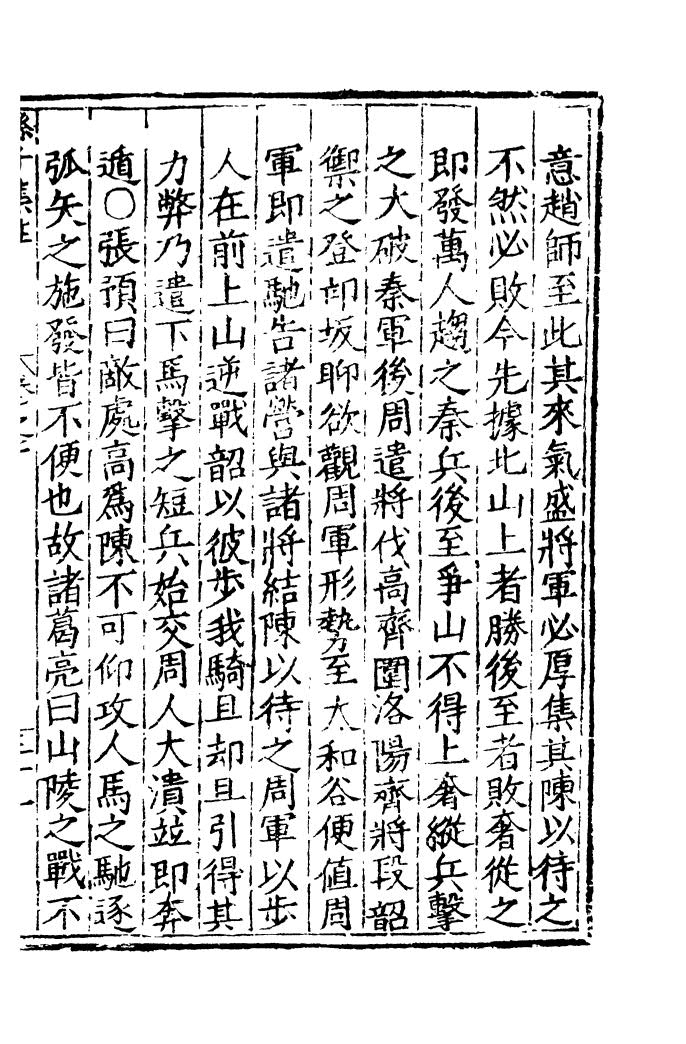 意趙師至此其來氣盛將軍必厚集其陳以待之
不然必敗今先據北山上者勝後至者敗奢從之
即發萬人趨之秦兵後至爭山不得上奢縱兵擊
之大破秦軍後周遣將伐高齊圍洛陽齊將段韶
禦之登邙坂聊欲觀周軍形勢至太和谷便值周
軍即遣馳告諸營與諸將結陳以待之周軍以步
人在前上山逆戰韶以彼步我騎且却且引得其
力弊乃遣下馬擊之短兵始交周人大潰並即奔
遁○張預曰敵處高爲陳不可仰攻人馬之馳逐
弧矢之施發皆不便也故諸葛亮曰山陵之戰不